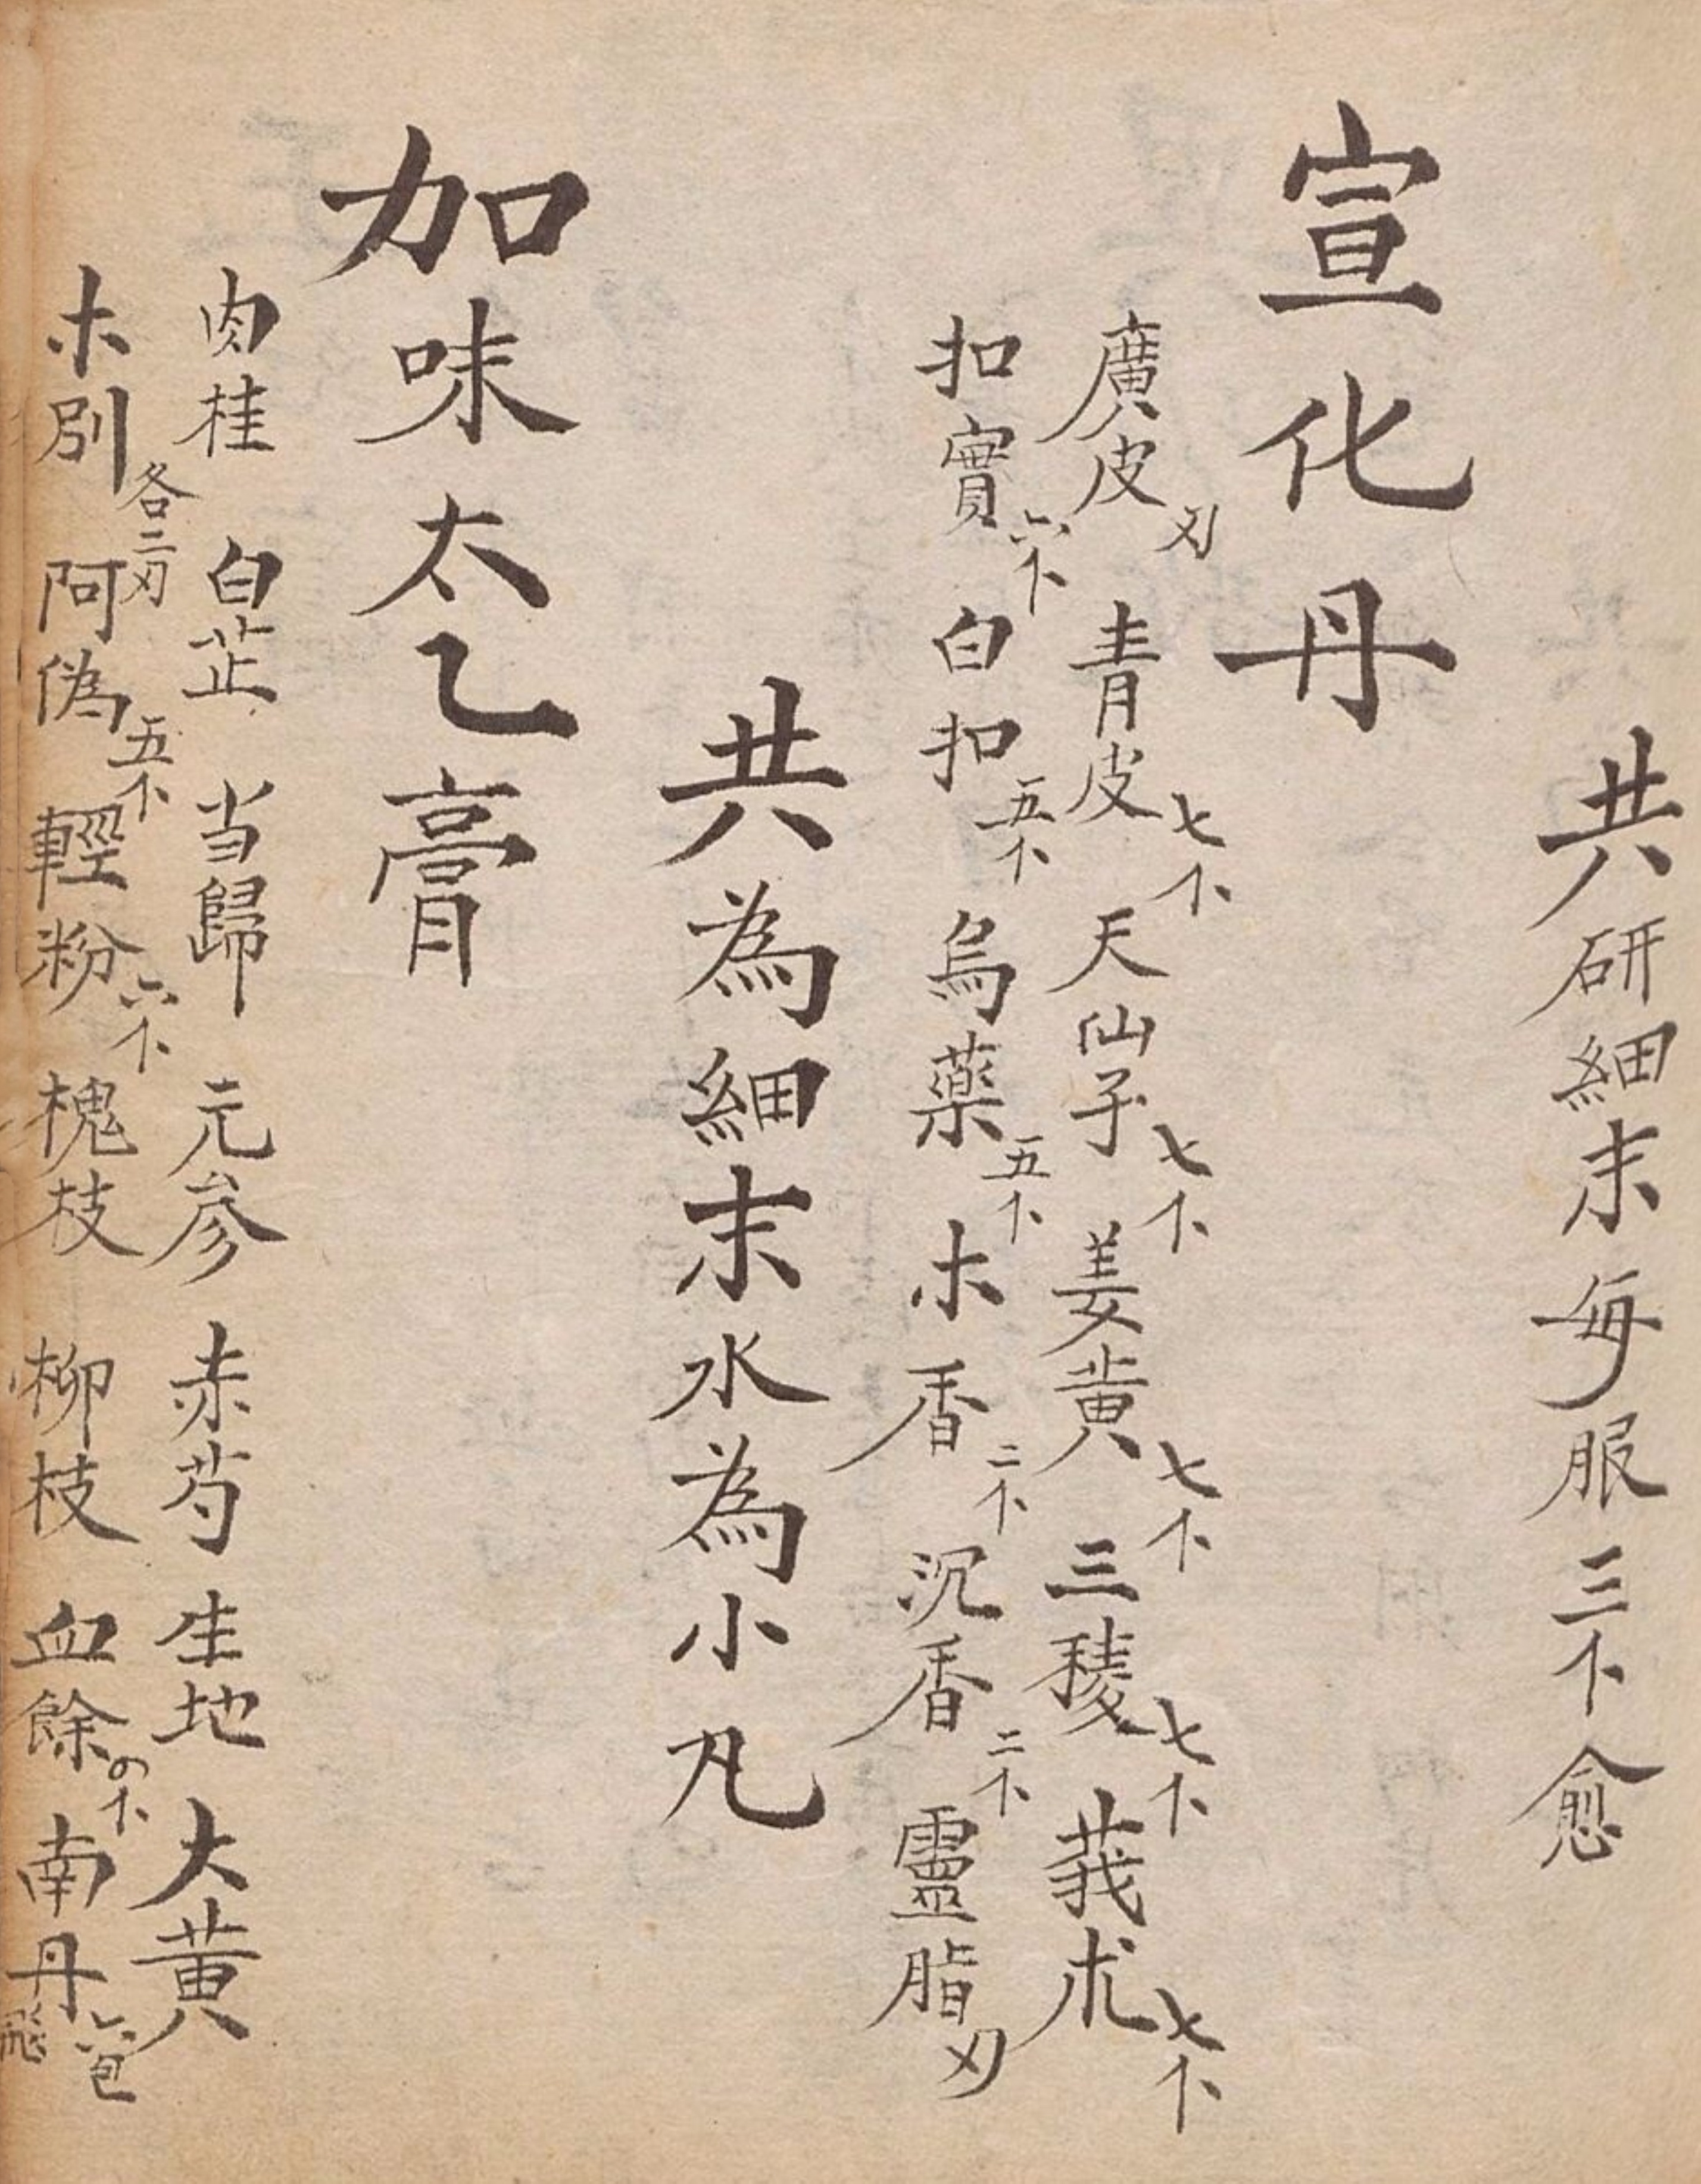 共研細末每服三个愈
宣化丹
廣皮刄 青皮七个 天仙子七个 姜黄七个 三稜七个 莪朮七个
扣實六个 白扣五个 烏藥五个 木香二个 沉香二个 靈脂刄
共為細末水為小凡
加味太乙膏
肉桂 白芷 当歸 元参 赤芍 生地 大黄
木別各二刄 阿偽五个 輕粉六个 槐枝 柳枝 血餘 个 南丹 飛